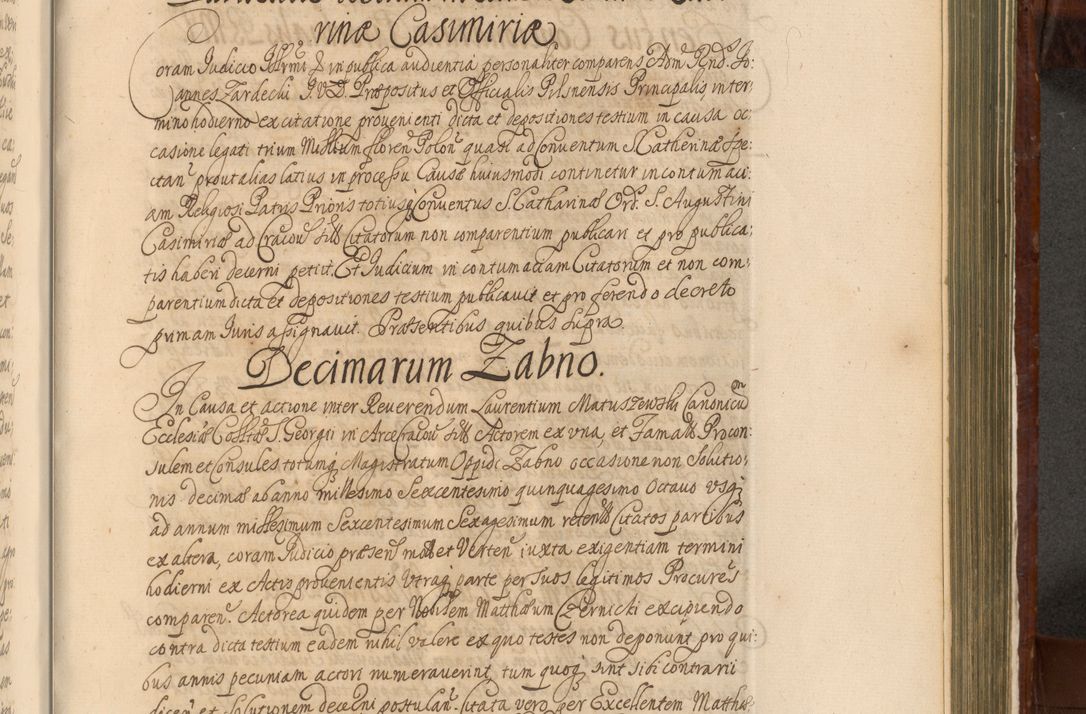 rinæ Casimiriæ
Coram Judicio Illrmi D in publica audientia personaliter comparens Adm Rnd Jo:
annes Zardecki J.V.D. Præpositus et Officialis Pilsnensis Principalis, inter:
mino hodierno ex citatione provenienti dicta et depositiones testium in causa oc:
casione legati trium Millium floren Polon quasi ad Conventum S Catherinæ spe:
ctan prout alias latius in processu Causæ huiusmodi continetur in contumaci:
am Religiosi Patris Prioris totiusq Conventus S. Catharinæ Ord. S. Augustini
Casimiriæ ad Cracou sitti Citatorum non comparentium publicari et pro publica:
tis haberi decerni petiit. Et Judicium in contumaciam Citatorum et non com:
parentium dicta et depositiones testium publicavit et pro ferendo decreto
primam Juris assignavit. Præsentibus quibus supra.
Decimarum Zabno.
In Causa et actione inter Reverendum Laurentium Matuszewski Canonicum
Ecclesiæ Colltæ S. Georgii in Arce Cracou sitt Actorem ex una, et Famatt Procon:
sulem et Consules totumq Magistratum Oppidi Zabno occasione non Solutio:
nis decimæ ab anno millesimo Sexcentesimo quinquagesimo Octavo usq
ad annum millesimum Sexcentesimum Sexagesimum retent Citatos partibus
ex altera, coram Judicio præsen et Verten iuxta exigentiam termini
hodierni ex Actis provenientis Utraq parte per suos legitimos Procures
comparen. Actorea quidem per Nobilem Matthæum Czernicki excipiendo
contra dicta testium eadem nihil valere ex quo testes non deponunt pro qui:
bus annis pecuniam actori numeraverint, tum quoq sint sibi contrarii
dicen et Solutionem decerni postulan. Citata vero per Excellentem Matthæ